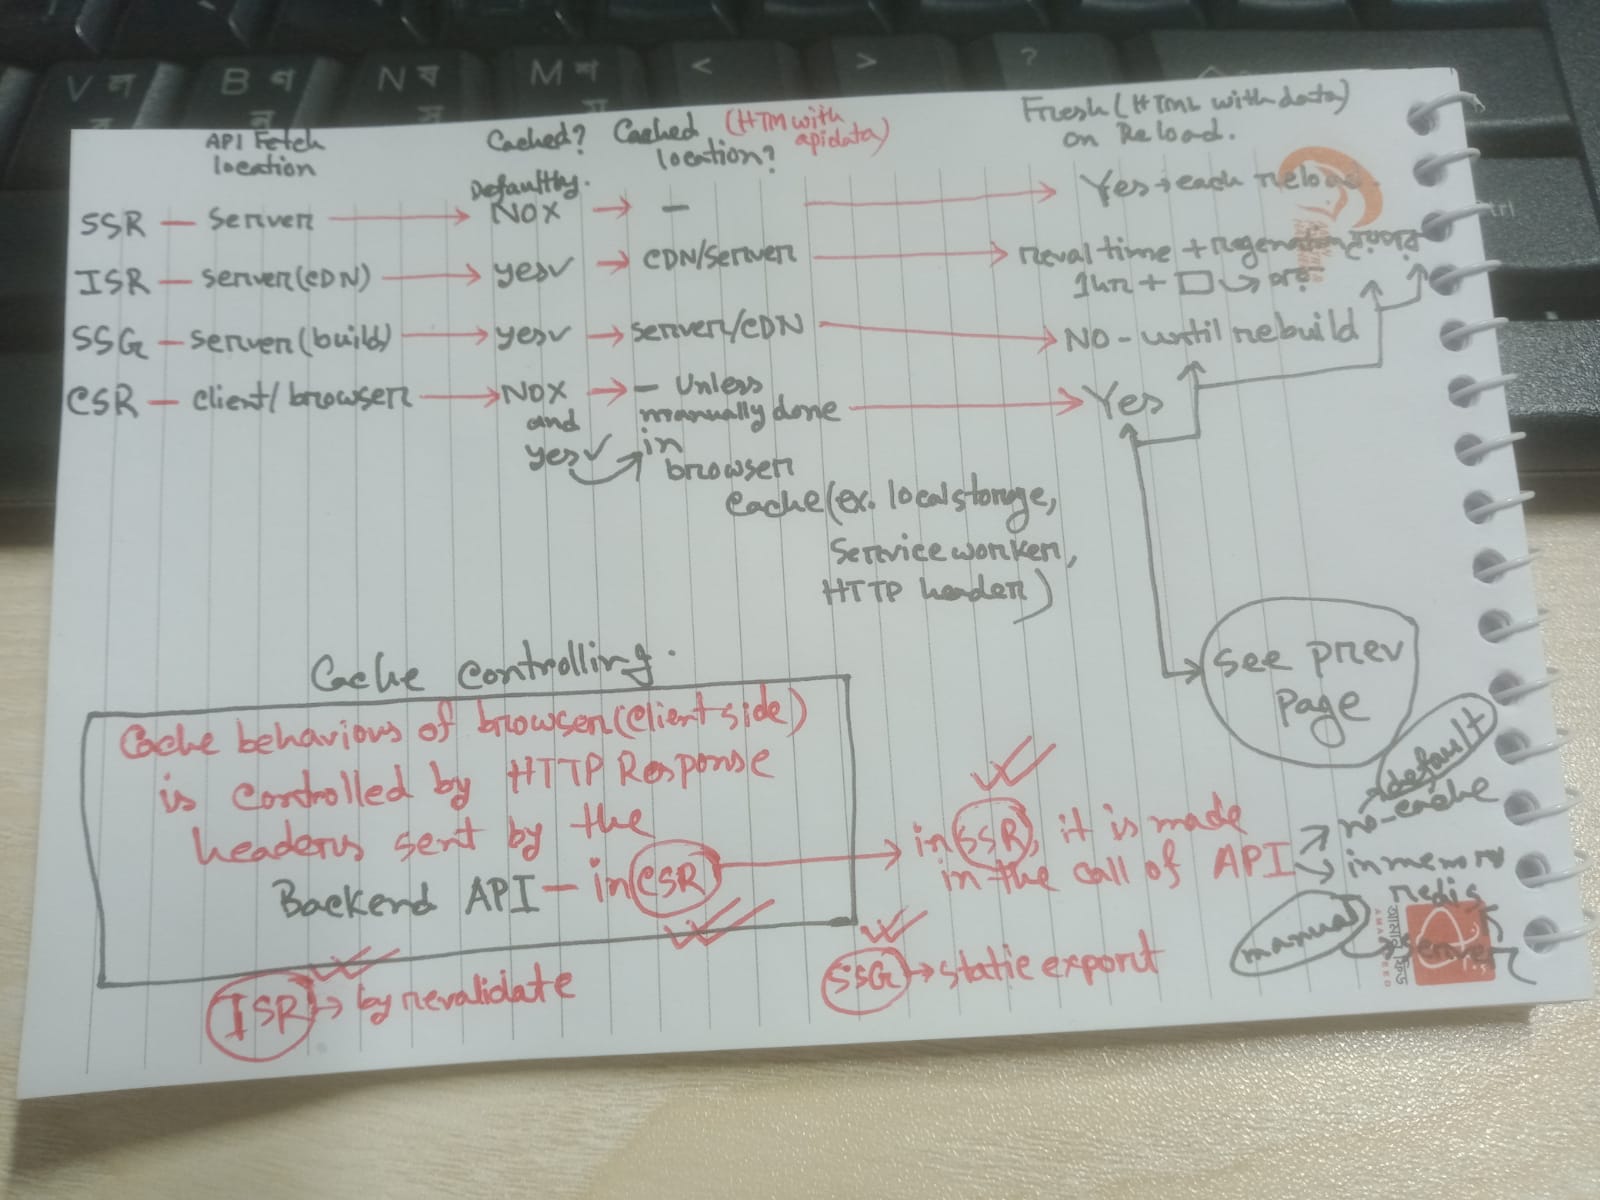 V ন
B ণ
N ষ
M শ
<
>
?
API Fetch location
Cached?
Defaultly.
Cached location?
(HTM with apidata)
Fresh (HTML with data) on Reload.
SSR — server → NOX → — → Yes → each reload
ISR — server(CDN) → yes✓ → CDN/server → reval time + regeneration
1hr + □
SSG — server(build) → yes✓ → server/CDN → NO - until rebuild
CSR — client/browser → NOX → — Unless → Yes
and yes✓
manually done
in browser
cache (ex. localstorage,
service worker,
HTTP header)
see prev page
Cache controlling.
Cache behaviours of browser(client side)
is controlled by HTTP Response
headers sent by the
Backend API — in CSR → in SSR, it is made
in the call of API
default
no-cache
in memory
redis
manual
server
ISR → by revalidate
SSG → static export